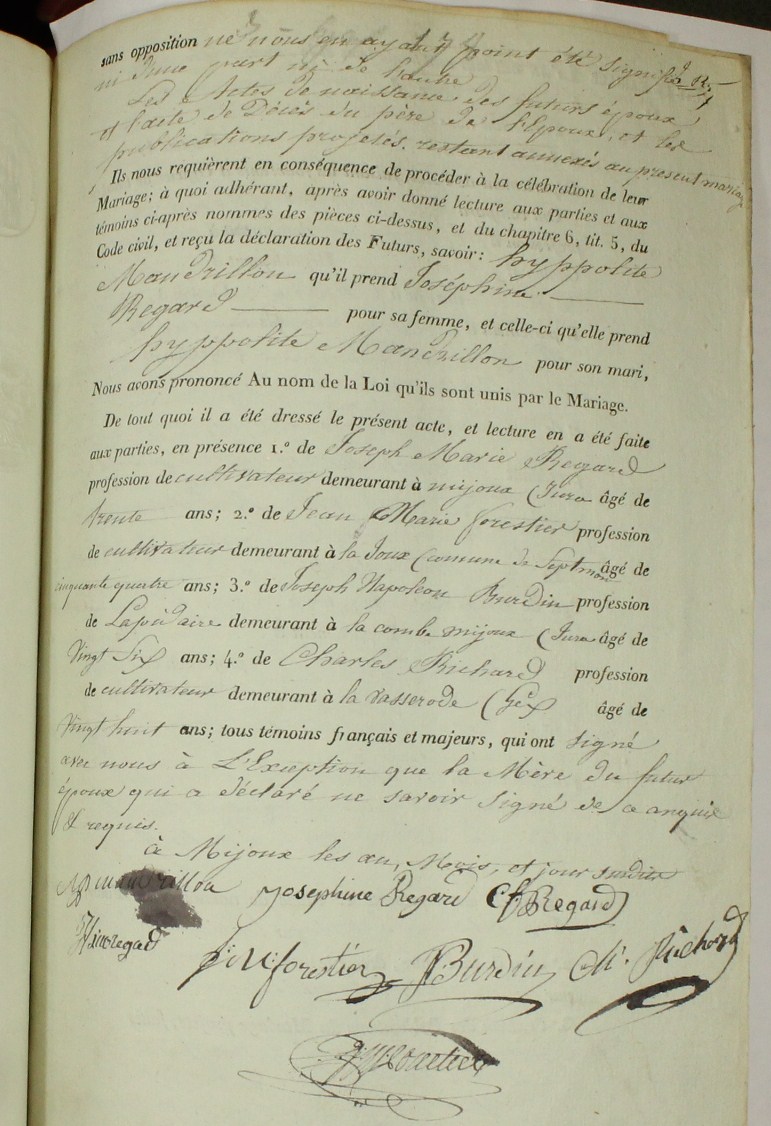 sans opposition ne nous en ayant point été signifié
ni d'une part ni de l'autre
Les Actes de naissance des futurs époux,
et l'acte de Décès du père de l'Epoux, et les
publications projetés, restant annexés au présent mariage
Ils nous requièrent en conséquence de procéder à la célébration de leur
Mariage; à quoi adhérant, après avoir donné lecture aux parties et aux
témoins ci-après nommés des pièces ci-dessus, et du chapitre 6, tit. 5, du
Code civil, et reçu la déclaration des Futurs, savoir: hyppolite
Mandrillon qu'il prend Joséphine
Regard pour sa femme, et celle-ci qu'elle prend
hyppolite Mandrillon pour son mari,
Nous avons prononcé Au nom de la Loi qu'ils sont unis par le Mariage.
De tout quoi il a été dressé le présent acte, et lecture en a été faite
aux parties, en présence 1.º de Joseph Marie Regard
profession de cultivateur demeurant à mijoux (Jura âgé de
trente ans; 2.º de Jean Marie forestier profession
de cultivateur demeurant à la Joux Comune de Septmon âgé de
cinquante quatre ans; 3.º de Joseph Napoleon Burdin profession
de Lapidaire demeurant à la combe mijoux (Jura âgé de
Vingt Six ans; 4.º de Charles Richard profession
de cultivateur demeurant à la vasserode (Gex âgé de
Vingt huit ans; tous témoins français et majeurs, qui ont signé
avec nous à L'Exception que la Mère du futur
époux qui a déclaré ne savoir signé de ce anquis
& requis.
à Mijoux les an, Mois, et jour susdits
Mandrillon Josephine Regard Regard
regard forestier Burdin Ch. Richard